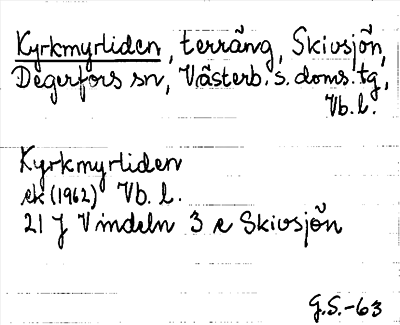 Kyrkmyrliden, terräng, Skivsjön,
Degerfors sn, Västerb. s. doms. tg,
Vb. l.
Kyrkmyrliden
ek (1962) Vb. l.
21 J Vindeln 3 e Skivsjön
G.S.-63